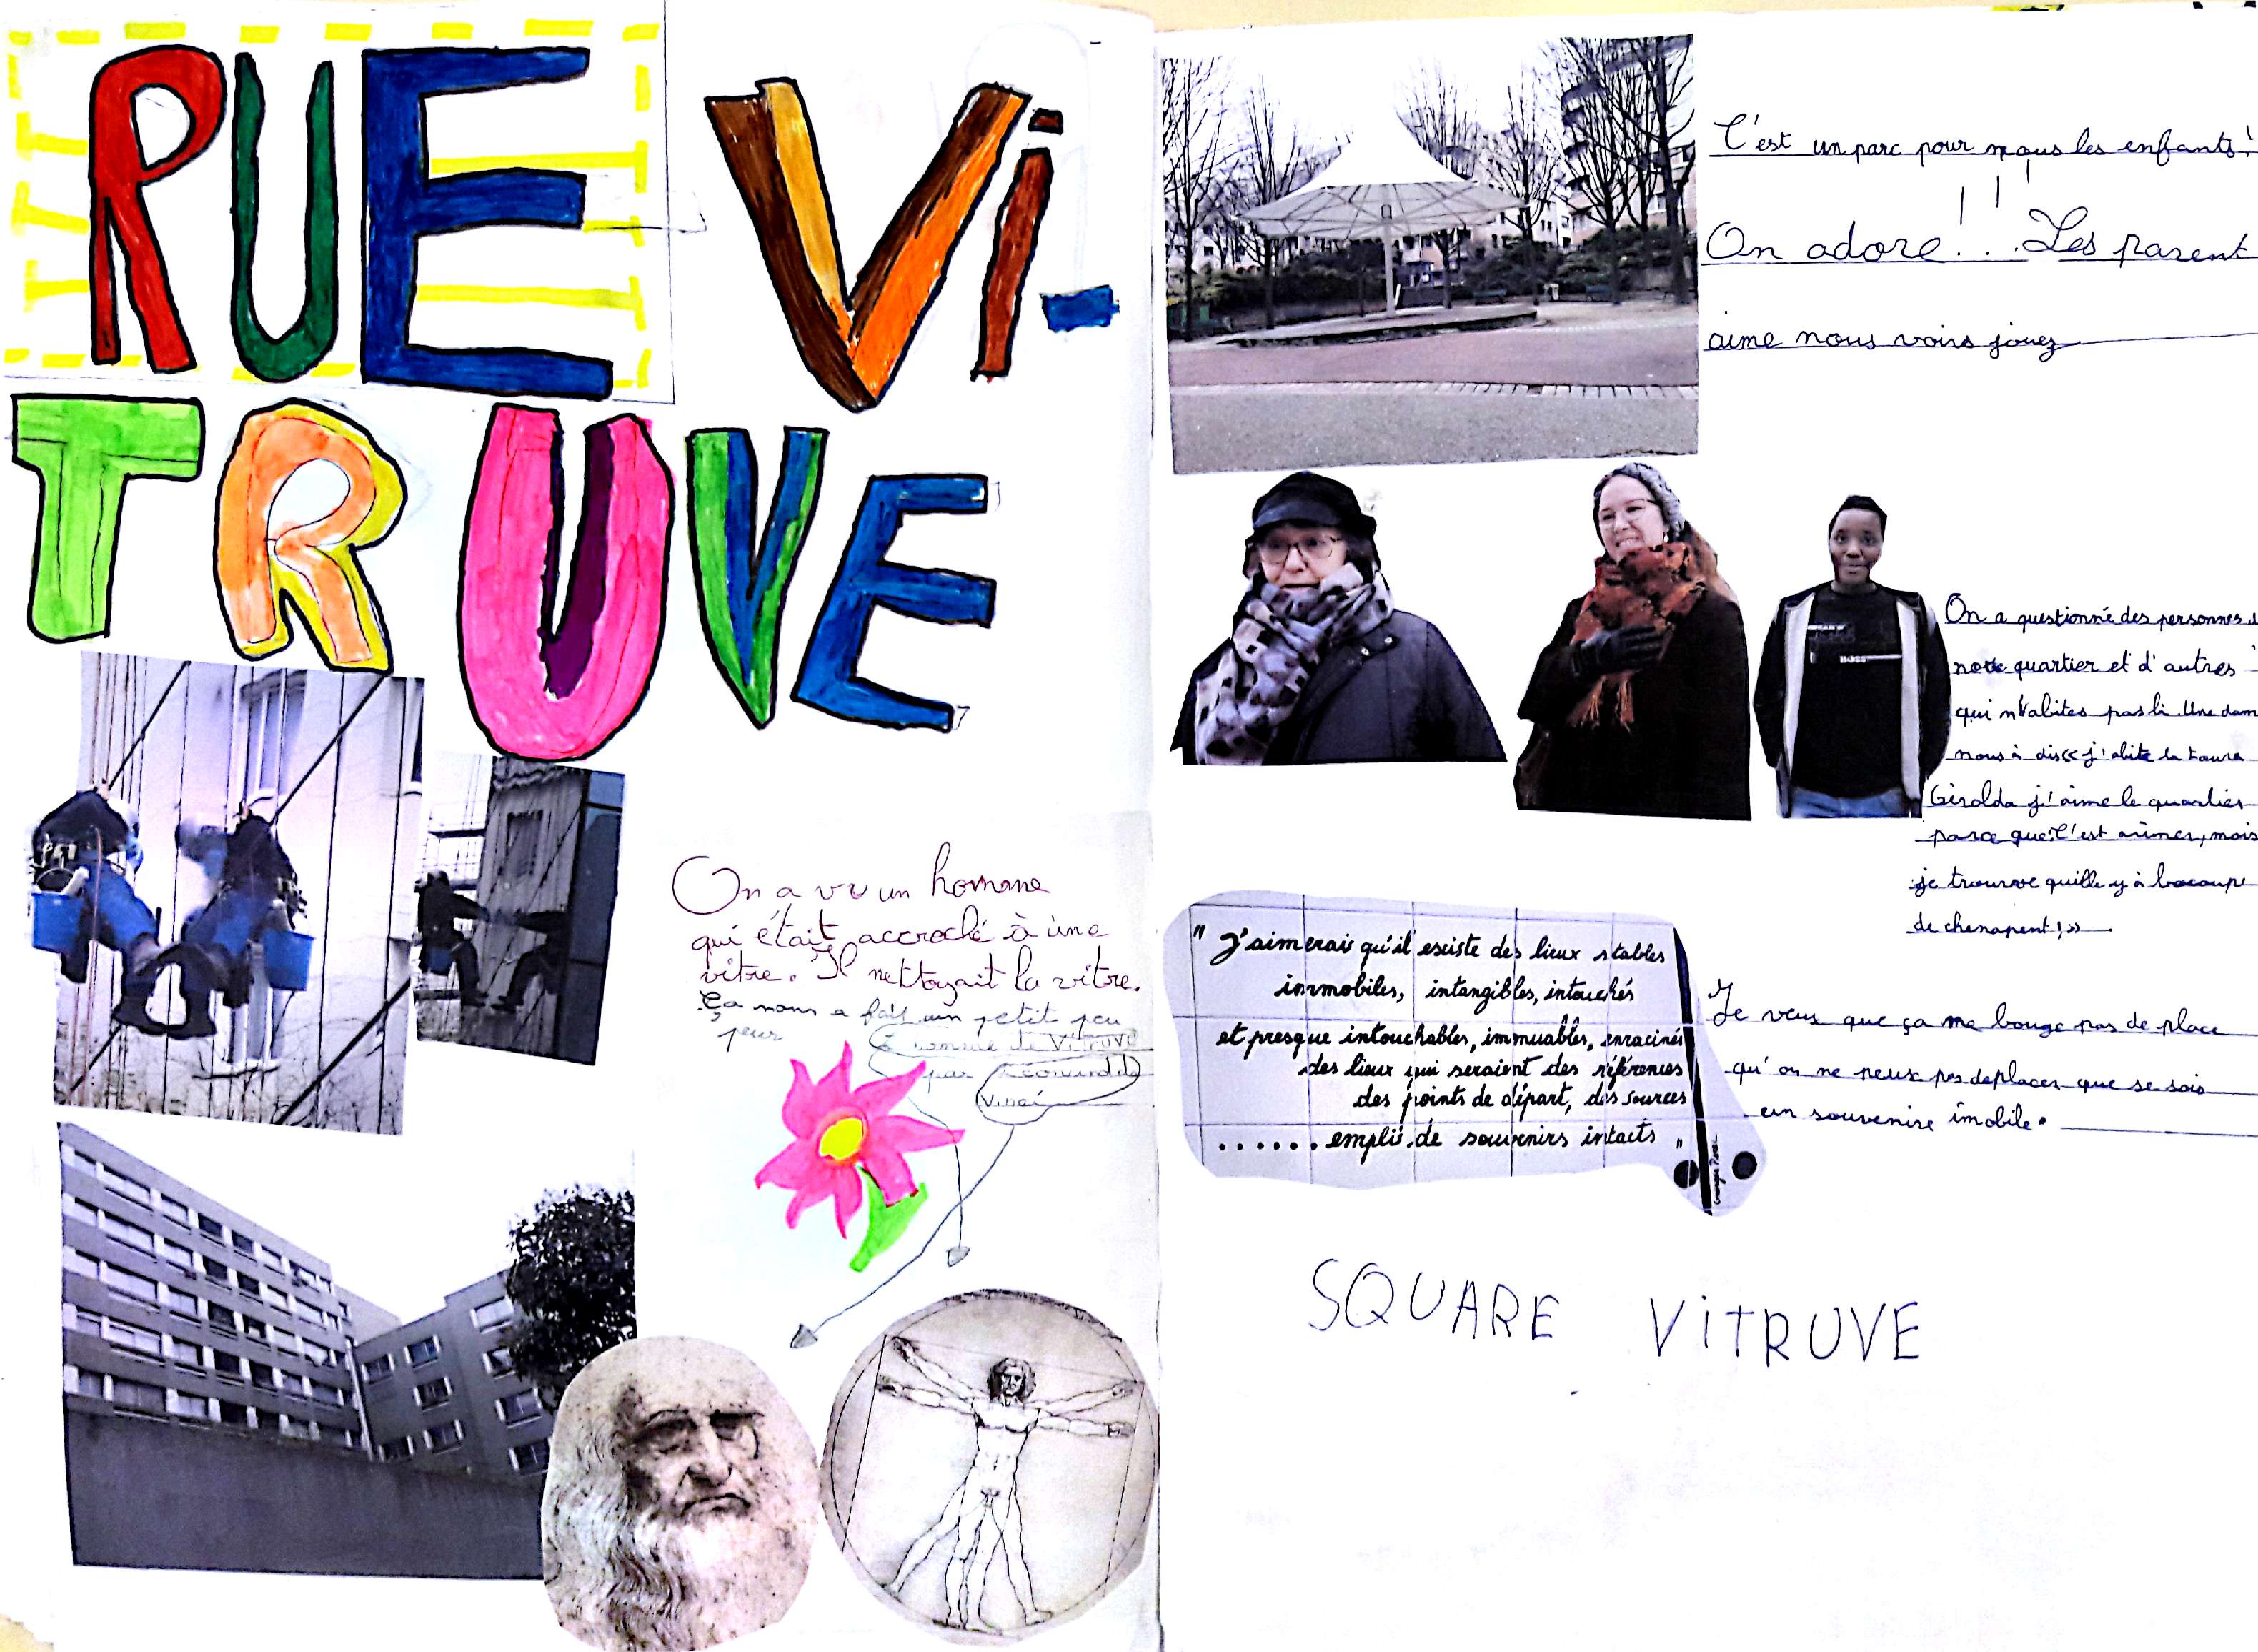 RUE Vi-
TRUVE
On a vu un homme
qui était accroché à une
vitre. Il nettoyait la vitre.
Ça nous a fait un petit peu
peur
homme de ViTRUVE
par Léonard de
Vinci
C'est un parc pour nous les enfants!
On adore!... Les parent
aime nous voirs jouez
On a questionné des personnes
notre quartier et d'autres
qui n'abites pas li. Une dam
nous à dis « j'abite la toure
Gèralda j'aime le quartier
parce que: C'est animer, mais
je trourve quille y à bocoupe
de chenapent! »
BOSS
" J'aimerais qu'il existe des lieux stables
immobiles, intangibles, intouchés
et presque intouchables, immuables, enracinés
des lieux qui seraient des références
des points de départ, des sources
......emplis de souvenirs intacts "
Georges Perec
Je veux que ça ne bouge pas de place
qu'on ne peux pas deplacer que se sois
un souvenire imobile.
SQUARE ViTRUVE